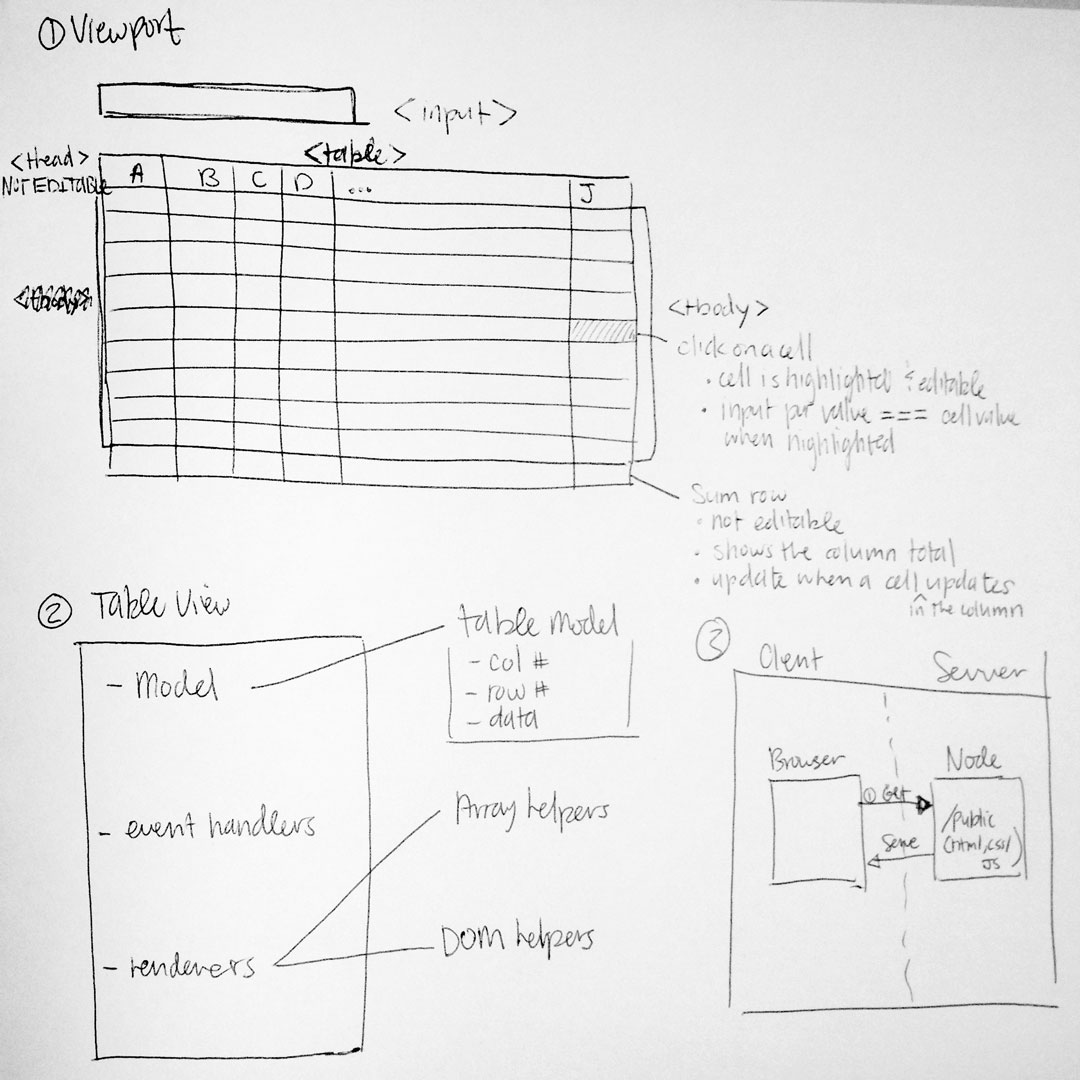 ① Viewport
<input>
<thead>
NOT EDITABLE
<table>
A B C D ... J
<tbody>
click on a cell
• cell is highlighted & editable
• input value === cell value
when highlighted
Sum row
• not editable
• shows the column total
• update when a cell updates
^ in the column
② Table View
- Model
- event handlers
- renderers
table model
- col #
- row #
- data
Array helpers
DOM helpers
③
Client Server
Browser Node
① Get
Serve
/public
(html, css/
JS)